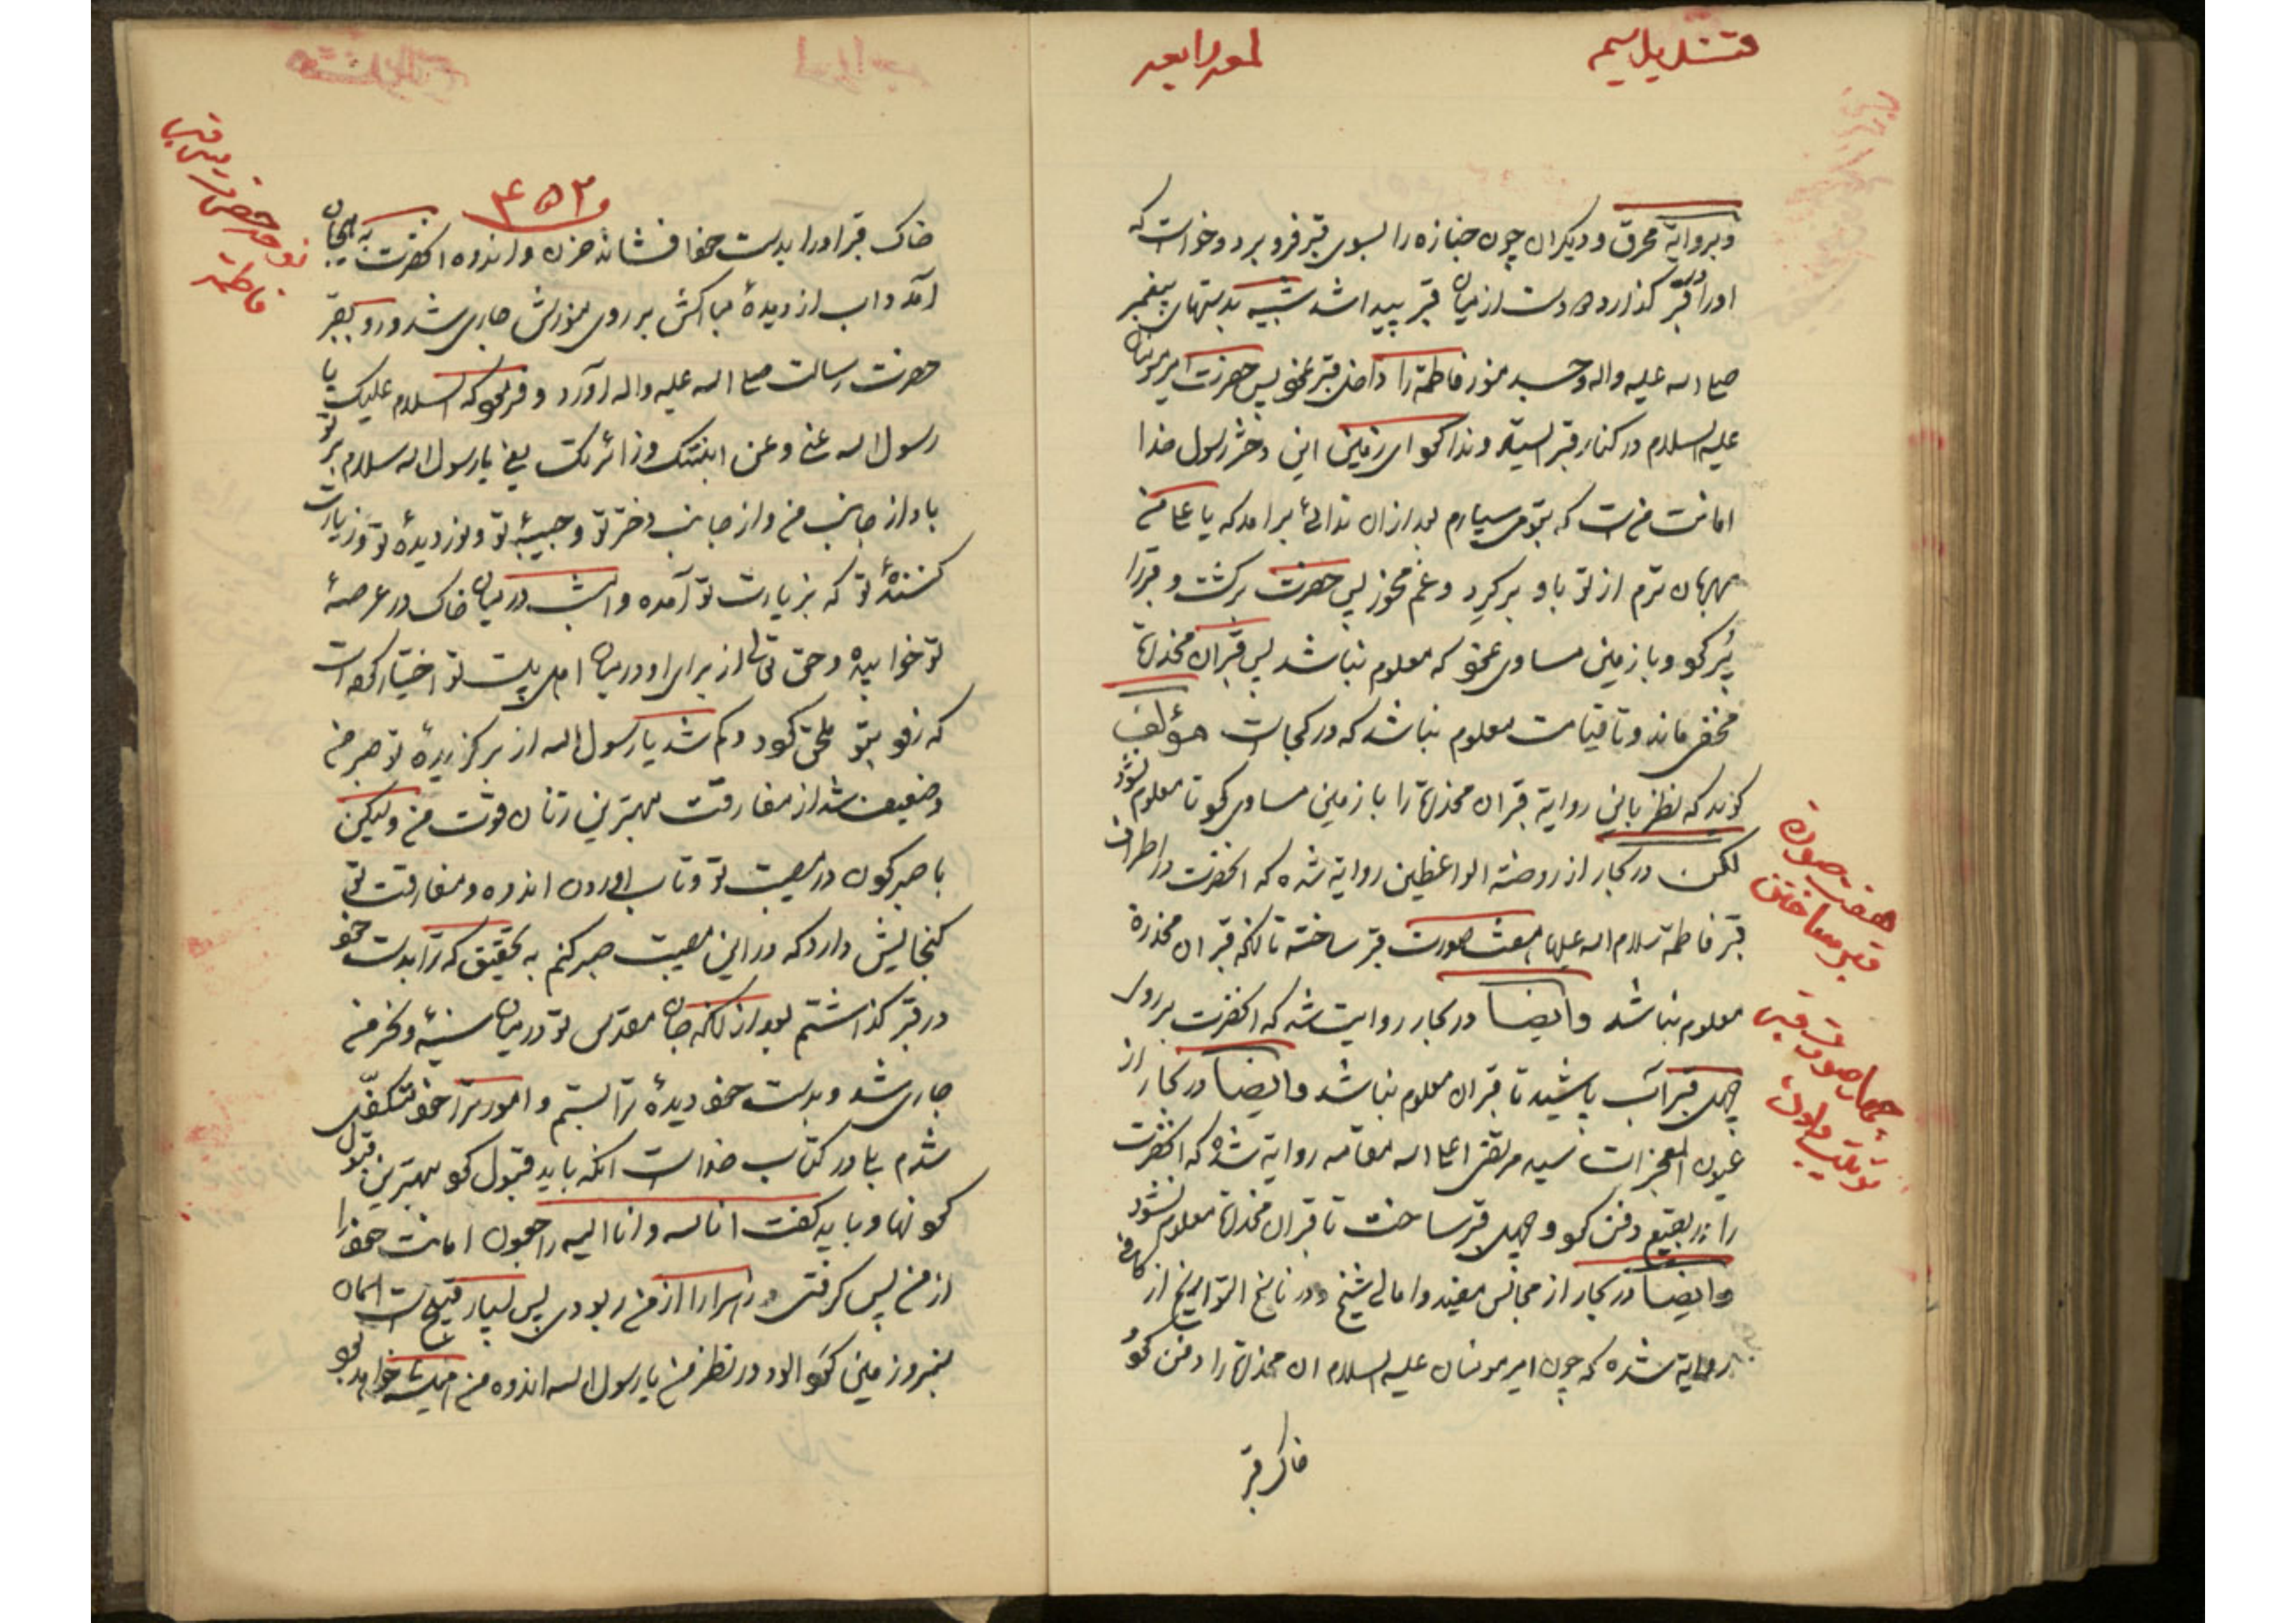 قندیل سیم
لمعه رابعه
وبروایة محرق و دیکران چون جنازه را بسوی قبر فرو برد و خواست که
اورا در قبر کذارد دو دست از میان قبر پیدا شد شبیه بدستهای پیغمبر
صلی الله علیه واله و جسد منور فاطمة را داخل قبر نمود پس حضرت امیر مومنان
علیه السلام در کنار قبر ایستاد و ندا کرد ای زمین این دختر رسول خدا
امانت من است که بتو می سپارم بعد از آن ندائی برآمد که یا علی من
مهربان ترم از تو باو برکرد و غم مخور پس حضرت برکشت و قبر را
پر کرد و با زمین مساوی نمود که معلوم نباشد پس قبر ان مخدرة
مخفی ماند و تا قیامت معلوم نباشد که در کجاست مؤلف
کوید که نظر باین روایة قبر ان مخدرة را با زمین مساوی کرد تا معلوم نشود
لکن در بحار از روضة الواعظین روایة شده که انحضرت در اطراف
قبر فاطمة سلام الله علیها هفت صورت قبر ساخته تا انکه قبر ان مخدرة
معلوم نباشد وایضا در بحار روایت شده که انحضرت بر روی
چهل قبر آب پاشید تا قبر ان معلوم نباشد وایضا در بحار از
عیون المعجزات سید مرتضی اعلی الله مقامه روایة شده که انحضرت
را در بقیع دفن کرد و چهل قبر ساخت تا قبر ان مخدرة معلوم نشود
وایضا در بحار از مجالس مفید و امالی شیخ و در ناسخ التواریخ از کافی
روایة شده که چون امیر مومنان علیه السلام ان مخدرة را دفن کرد
خاک قبر
هفت صورة
قبر ساختن
چهل صورة قبر
ترتیب دادن
۴۵۲
نوحه حضرت بر قبر
فاطمة
خاک قبر اورا بدست خود افشاند حزن و اندوه انحضرت به هیجان
آمد و اب از دیدهٔ مبارکش بر روی منورش جاری شد و رو بقبر
حضرت رسالت صلی الله علیه واله آورد و فرمود که السلام علیک یا
رسول الله عنی و عن ابنتک و زائرتک یعنی یا رسول الله سلام بر تو
باد از جانب من و از جانب دختر تو و حبیبهٔ تو و نور دیدهٔ تو و زیارت
کنندهٔ تو که بزیارت تو آمده و امشب در میان خاک در عرصهٔ
تو خوابیده و حق تعالی از برای او در میان اهل بیت تو اختیار کرده است
که زود بتو ملحق کردد و کم شد یا رسول الله از برکزیدهٔ تو صبر من
و ضعیف شد از مفارقت بهترین زنان قوت من ولیکن
با صبر کردن در مصیبت تو و تاب اوردن اندوه و مفارقت تو
کنجایش دارد که در این مصیبت صبر کنم به تحقیق که ترا بدست خود
در قبر کذاشتم بعد از انکه جان مقدس تو در میان سینه و نحر من
جاری شد و بدست خود دیدهٔ ترا بستم و امور ترا خود متکفل
شدم بلی در کتاب خداست انکه باید قبول کرد بهترین قبول
کردنها و باید کفت انا لله وانا الیه راجعون امانت خود را
از من پس کرفتی و زهرا را از من ربودی پس بسیار قبیح است اسمان
سبز و زمین کرد الود در نظر من یا رسول الله اندوه من همیشه خواهد بود